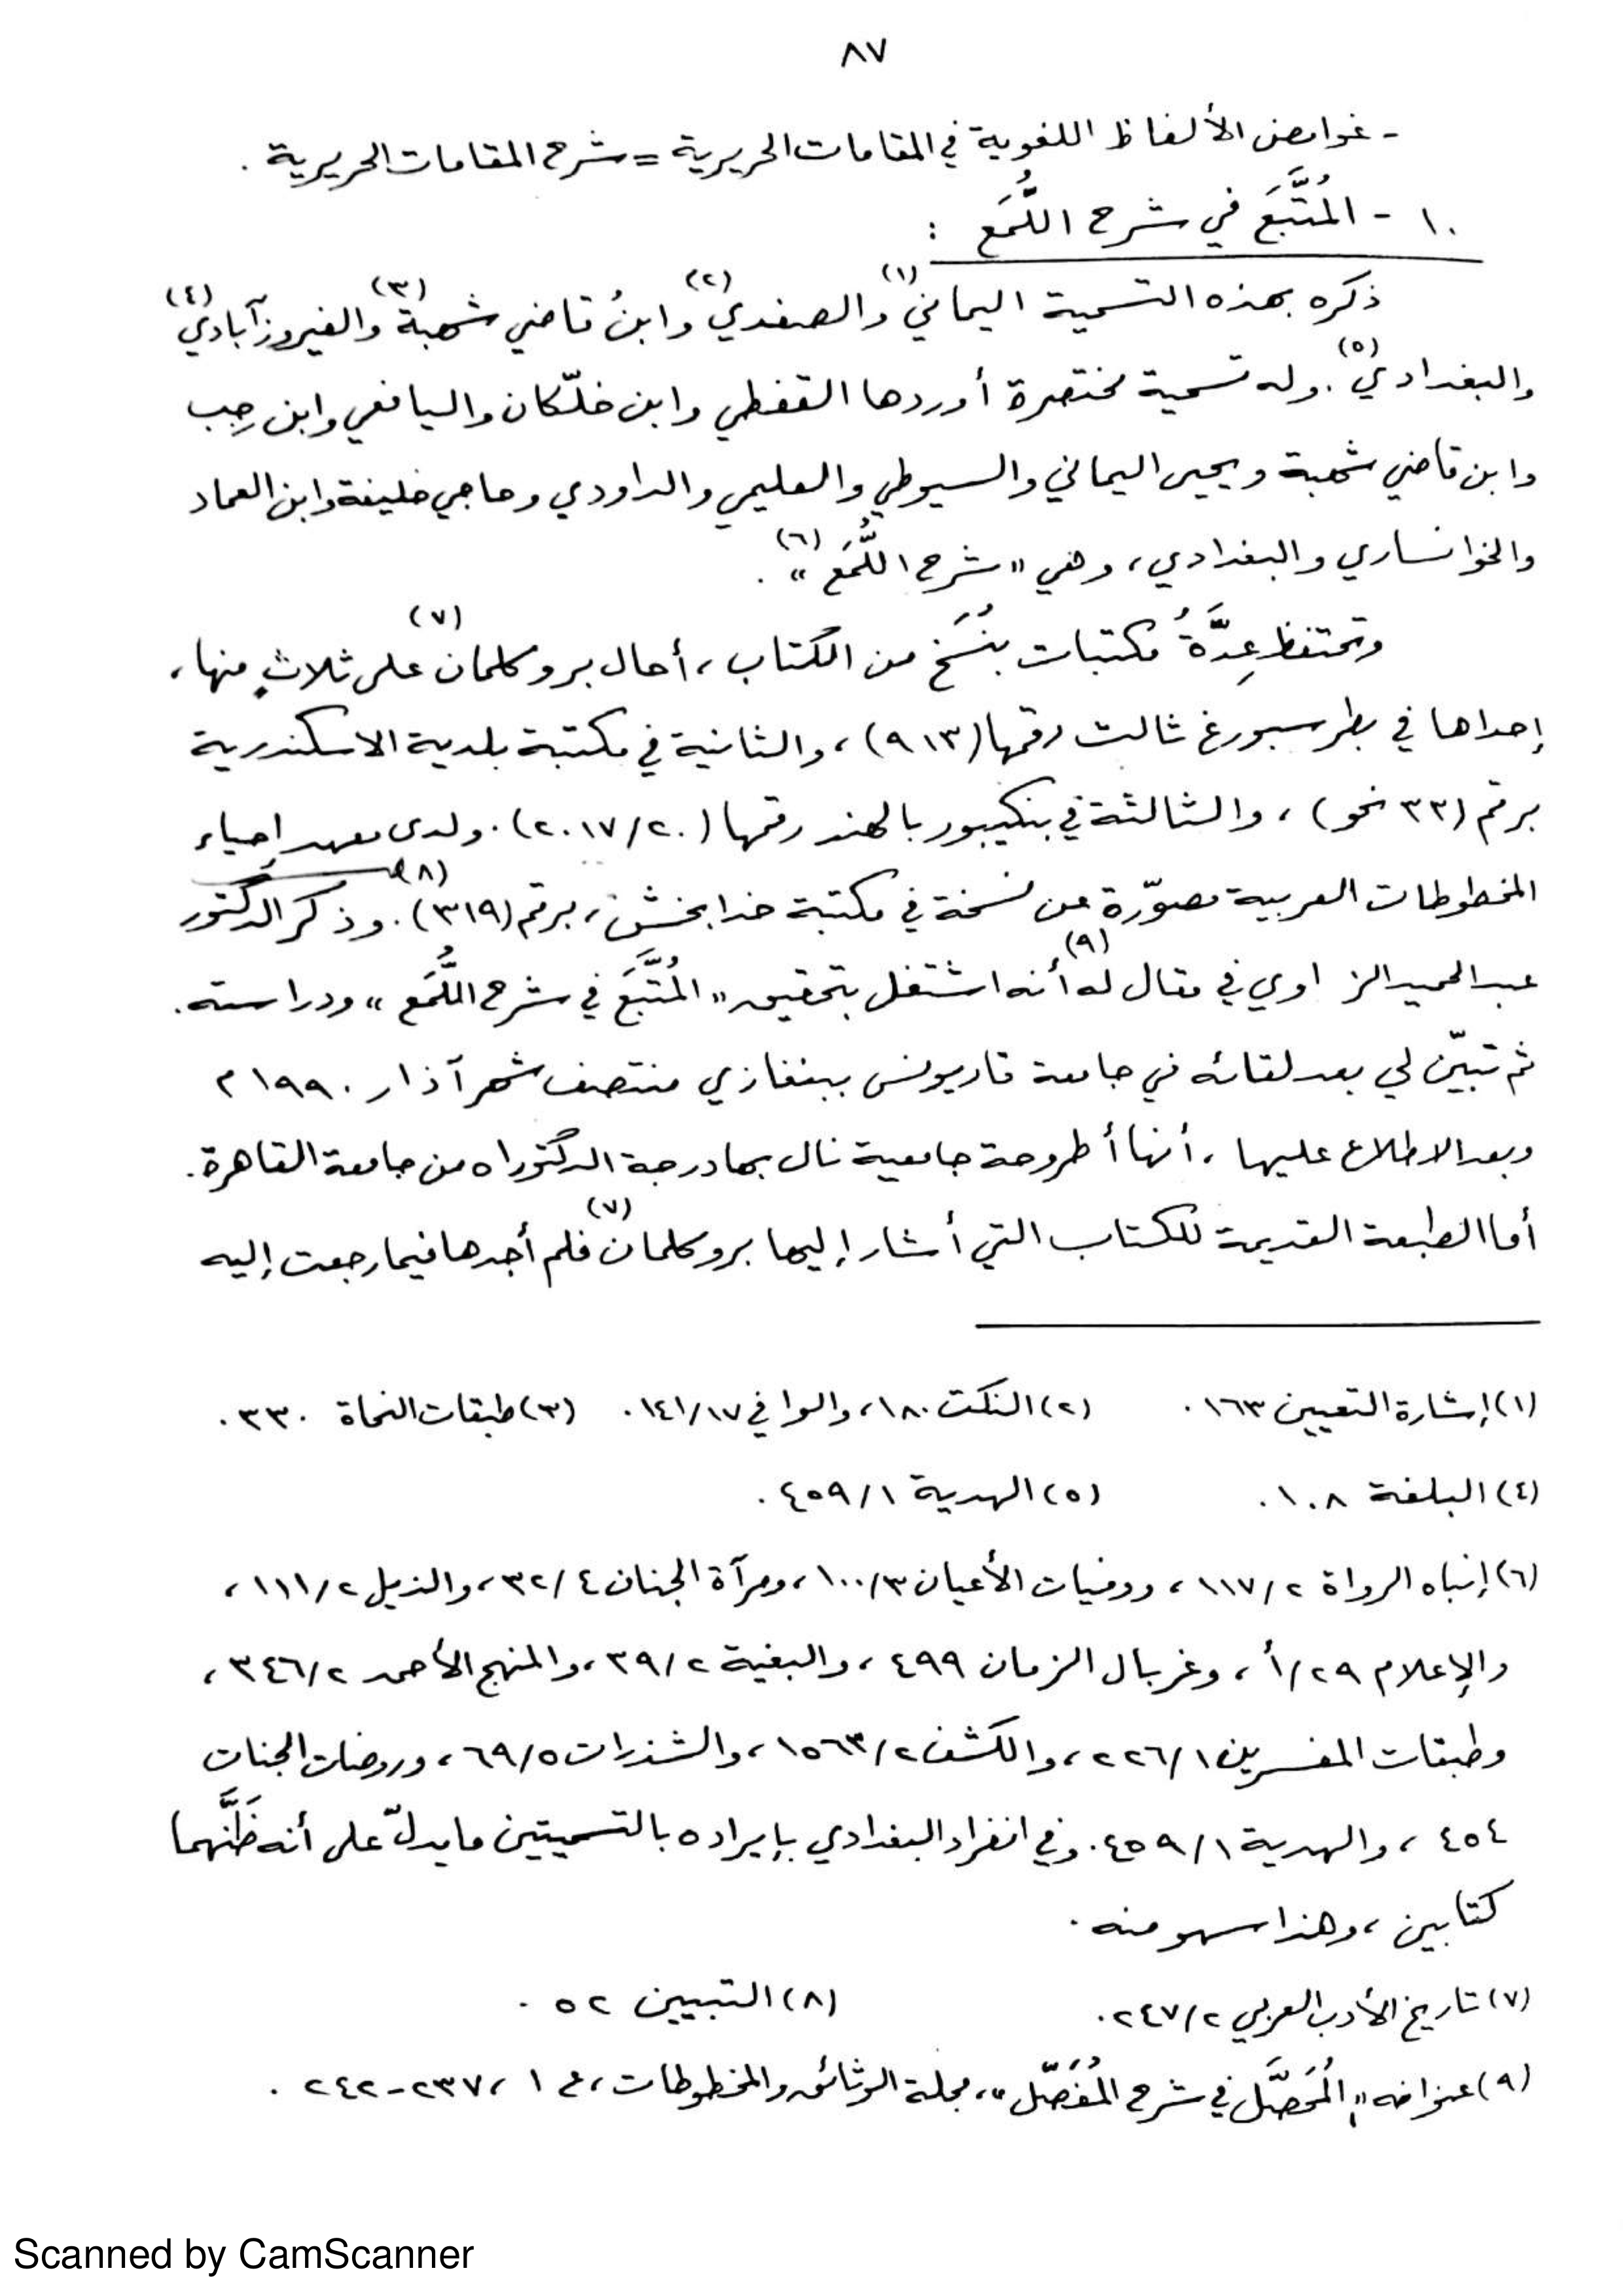 ٨٧
- غوامض الألفاظ اللغوية في المقامات الحريرية = شرح المقامات الحريرية .
١٠ - المُتَّبَع في شرح اللُّمَع :
ذكره بهذه التسمية اليماني(١) والصفدي(٢) وابنُ قاضي شهبة(٣) والفيروزآبادي(٤)
والبغدادي(٥) . وله تسمية مختصرة أوردها القفطي وابن خلّكان واليافعي وابن رجب
وابن قاضي شهبة ويحيى اليماني والسيوطي والعليمي والداودي وحاجي خليفة وابن العماد
والخوانساري والبغدادي، وهي «شرح اللُّمَع»(٦) .
وتحتفظ عِدَّةُ مكتبات بنُسَخ من الكتاب، أحال بروكلمان(٧) على ثلاثٍ منها،
إحداها في بطرسبورغ ثالث رقمها (٩١٣)، والثانية في مكتبة بلدية الاسكندرية
برقم (٣٣ نحو)، والثالثة في بنكيبور بالهند رقمها (٢٠١٧/٢٠). ولدى معهد إحياء
المخطوطات العربية مصوّرة عن نسخة في مكتبة خدابخش، برقم (٣١٩)(٨). وذكر الدكتور
عبد الحميد الزاوي في مقال له(٩) أنه اشتغل بتحقيق «المُتَّبَع في شرح اللُّمَع» ودراسته.
ثم تبيّن لي بعد لقائه في جامعة قاريونس ببنغازي منتصف شهر آذار ١٩٩٠ م
وبعد الاطلاع عليها، أنها أطروحة جامعية نال بها درجة الدكتوراه من جامعة القاهرة.
أما الطبعة القديمة للكتاب التي أشار إليها بروكلمان(٧) فلم أجدها فيما رجعت إليه
(١) إشارة التعيين ١٦٣ . (٢) النكت ١٨٠، والوافي ١٤١/١٧ . (٣) طبقات النحاة ٣٣٠ .
(٤) البلغة ١٠٨ . (٥) الهدية ٤٥٩/١ .
(٦) إنباه الرواة ١١٧/٢، ووفيات الأعيان ١٠٠/٣، ومرآة الجنان ٣٢/٤، والذيل ١١١/٢،
والإعلام ٢٩/أ، وغربال الزمان ٤٩٩، والبغية ٣٩/٢، والمنهج الأحمد ٣٤٦/٢،
وطبقات المفسرين ٢٢٦/١، والكشف ١٥٦٣/٢، والشذرات ٦٩/٥، وروضات الجنات
٤٥٤، والهدية ٤٥٩/١. وفي انفراد البغدادي بإيراده بالتسميتين ما يدلّ على أنه ظَنَّهما
كتابين، وهذا سهو منه .
(٧) تاريخ الأدب العربي ٢٤٧/٢ . (٨) التبيين ٥٢ .
(٩) عنوانه «المُحَصَّل في شرح المُفَصّل»، مجلة الوثائق والمخطوطات، ع ١، ٢٣٧-٢٤٢ .
Scanned by CamScanner